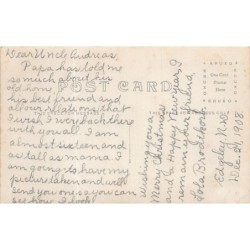 Dear Uncle Andreas.
Papa has told me
so much about his
old home,
his best friend and
all our relations that
I wish I was back there
with you all. I am
almost sixteen and
as tall as mama. I am
going to have my
picture taken and will
send you one, so you can
see how I look.
POST CARD
wishing you a
Merry Christmas
and a Happy New year. I
remain your friend
Lola Brodekorb
Edgeley N.D.
Dec. 09, 1908